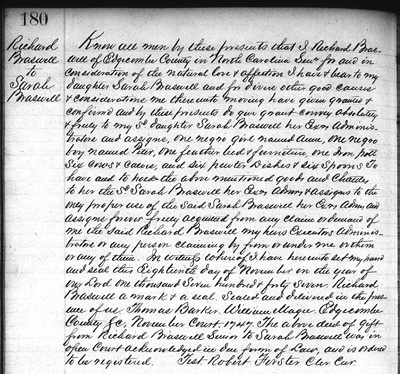 180
Richard
Braswell
to
Sarah
Braswell
Know all men by these presents that I Richard Bras-
well of Edgecombe County in North Carolina Senr for and in
consideration of the natural love & affection I have & bear to my
daughter Sarah Braswell and for divers other good causes
& considerations me thereunto moving have given granted &
confirmed and by these presents do give grant convey absolutely
& freely to my Sd daughter Sarah Braswell her Exrs adminis-
trators and assigns, one negro girl named one negro
boy named Peter, one feather bed & furniture, one iron pott
Six Cows & Calves, and six pewter Dishes & six Spoons To
have and to hold the above mentioned goods and Chattels
to her the Sd Sarah Braswell her Exrs Admrs & assigns to the
only proper use of the Said Sarah Braswell her Exrs Admrs and
assigns forever freely acquitted from any claim or demand of
me the said Richard Braswell my heirs Executors Adminis-
trators or any person claiming by from or under me or them
or any of them. In witness whereof I have hereunto set my hand
and seal this Eighteenth day of November in the year of
my Lord one thousand Seven hundred & forty Seven. Richard
Braswell a mark & a seal. Sealed and delivered in the pres
ence of us Thomas Barker. William Edgecombe
County &c. November Court 1747. The above deed of Gift
from Richard Braswell Senior to Sarah Braswell was in
open Court acknowledged in due form of Law, and is ordered
to be registered. Test Robert Forster Cler Cur.